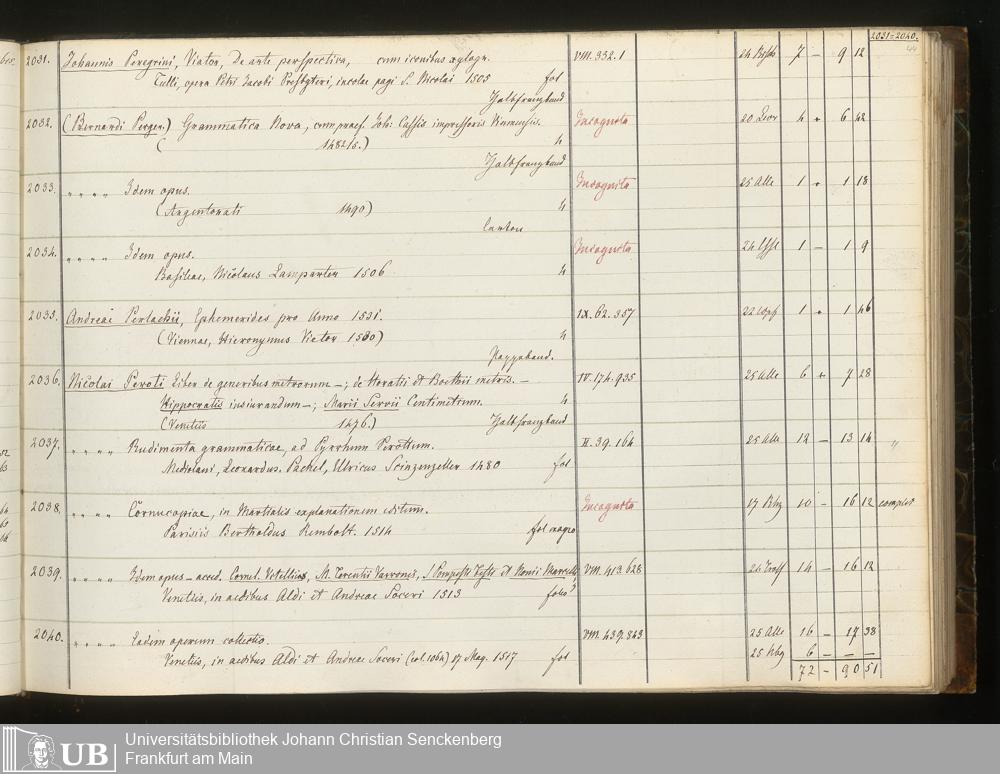 2031=2040.
44
2031. Johannis Peregrini, Viator, De arte perspectiva, cum iconibus xylogr. VIII. 332. 1 7 – 9 12
Tulli, opera Petri Jacobi Presbyteri, incolae pagi S. Nicolai 1505 fol
Halbfranzband
2032. (Bernardi Perger.) Grammatica Nova, cum praef. Joh. Cassis impressoris Viennensis. Incognita 4 6 42
( 1482/5.) 4
Halbfranzband
2033. „ „ „ „ Idem opus. Incognita 25 Alle 1 1 18
(Argentorati 1490) 4
carton
2034. „ „ „ „ Idem opus. Incognita 1 – 1 9
Basileae, Nicolaus Lamparter 1506 4
2035. Andreae Perlachii, Ephemerides pro Anno 1531. IX. 62. 357 1 1 46
(Viennae, Hieronymus Vietor 1530) 4
Pappband.
2036. Nicolai Peroti Liber de generibus metrorum –; de Horatii et Boethii metris. – IV. 174. 935 25 Alle 6 7 28
Hippocratis insiurandum –; Marii Servii Centimetrum. 4
(Venetiis 1476.) Halbfranzband
2037. „ „ „ „ Rudimenta grammaticae, ad Pyrrhum Perottum. II. 39. 164 25 Alle 12 – 13 14 „
Mediolani, Leonardus Pachel, Ulricus Scinzenzeller 1480 fol
2038. „ „ „ „ Cornucopiae, in Martialis explanationem editum. Incognita 10 – 16 12 complet
Parisiis Bertholdus Rembolt. 1514 fol magno
2039. „ „ „ „ Idem opus – acced. Cornel. Vitellius, M. Terentii Varronis, S Pompeji Festi et Nonii Marcelli VIII. 413. 628 14 – 16 12
Venetiis, in aedibus Aldi et Andreae Soceri 1513 folio
2040. „ „ „ „ Eadem operum collectio. VIII. 439. 843 25 Alle 16 – 17 38
Venetiis, in aedibus Aldi et Andreae Soceri (col. 1064) 17 Mag. 1517 fol 6 – – –
72 – 90 51
UB
Universitätsbibliothek Johann Christian Senckenberg
Frankfurt am Main